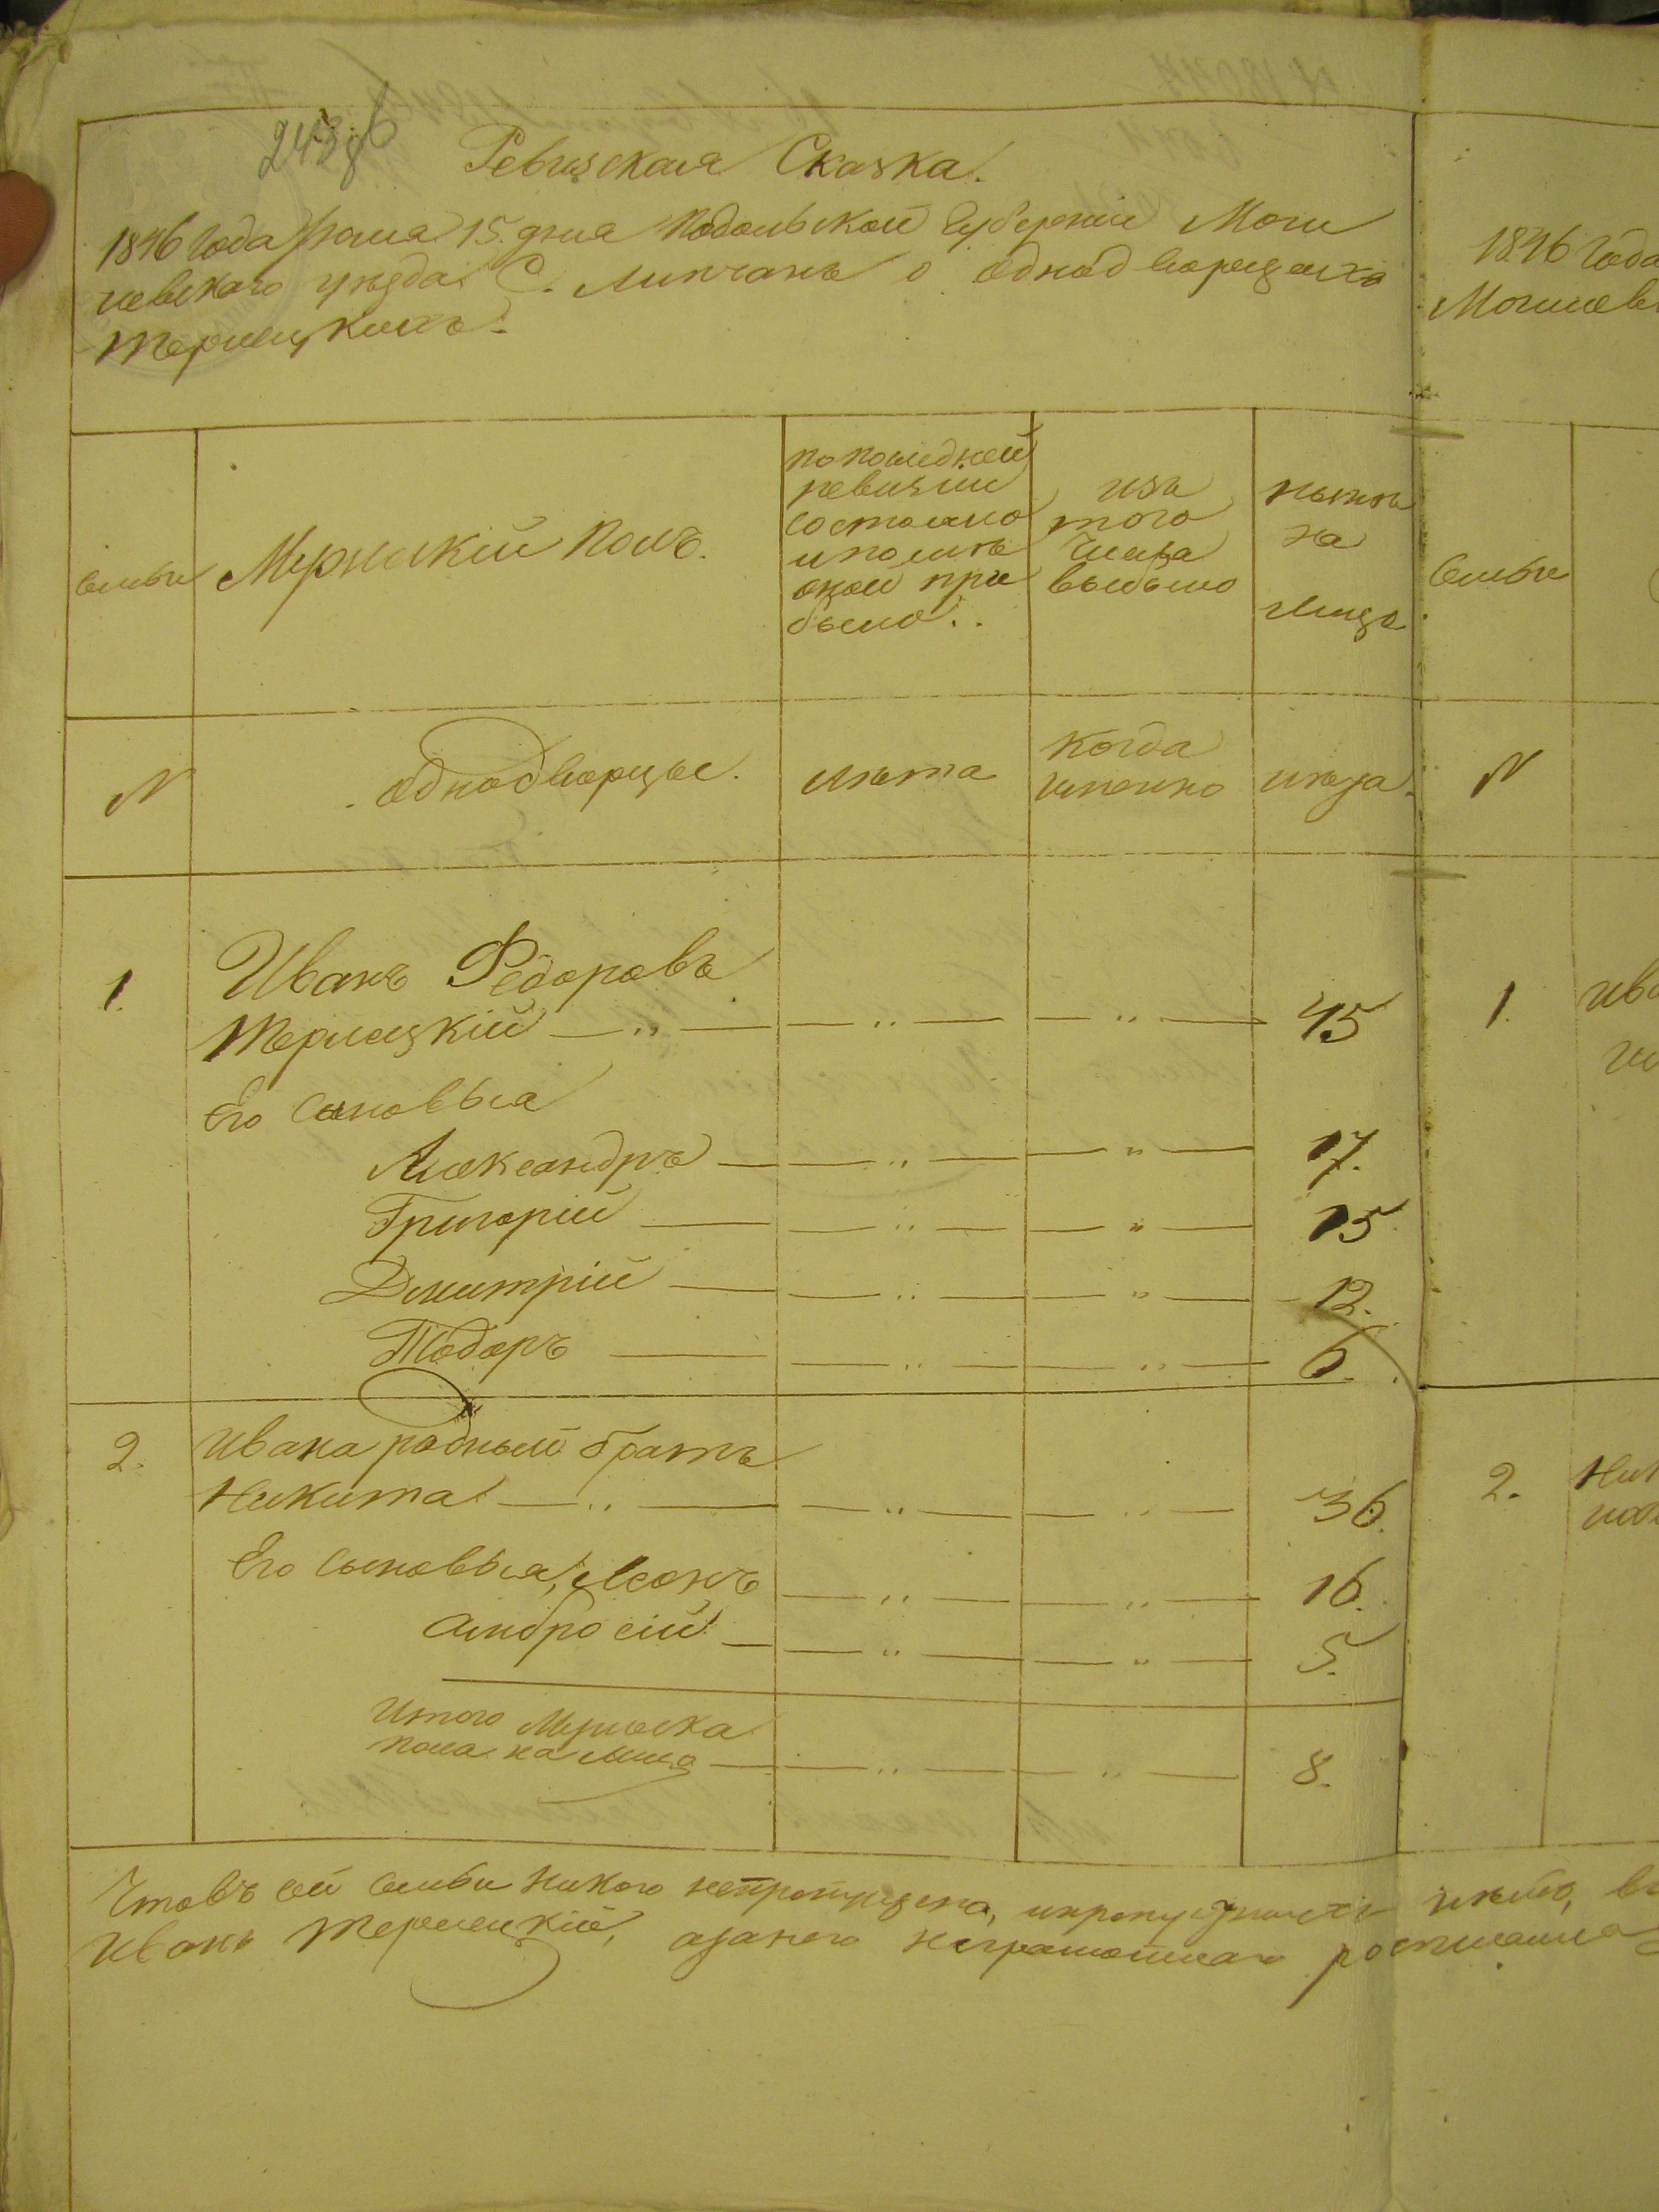 243 об
Ревизская Сказка.
1846 Года Июля 15. дня Подольской Губернии Моги
левского уезда С. Липчанъ о однодворцахъ
Терлецкихъ.
семьи
Мужеский Полъ.
по последней
ревизии
состояло
и после
оной при
было..
изъ
того
числа
выбыло
ныне
на
лицо
N
однодворцы.
лета
когда
именно
лета.
1.
Иванъ Федоровъ
Терлецкий — „ — — „ — — „ — 45
Его Сыновья
Александръ — — „ — — „ — 17.
Григорий — — „ — — „ — 15
Дмитрий — — „ — — „ — 12.
Тодоръ — — „ — — „ — 6.
2.
Ивана родный братъ
Никита — „ — — „ — — „ — 36.
Его сыновья, Леонъ — „ — — „ — 16.
Амбросий — — „ — — „ — 5.
Итого Мужеска
пола на лицо — — „ — — „ — 8.
Что въ сей семьи никого непропущено,
Иванъ Терлецкий, а за него неграмотнаго
1846 Года
Могилев
семьи
N
1.
Ива
2.
Ник